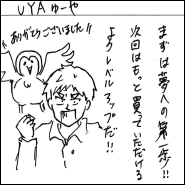 UYA ゆーや
まずは夢への第一歩!!
次回はもっと買っていただける
ようレベルアップだ!!
ありがとうございました!!